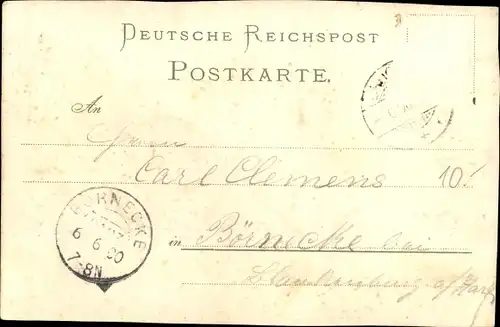 DEUTSCHE REICHSPOST
POSTKARTE.
An
Herrn
Carl Clemens 10!
BÖRNECKE
6 6 00
7-8N
in Börnecke bei
Blankenburg a/Harz